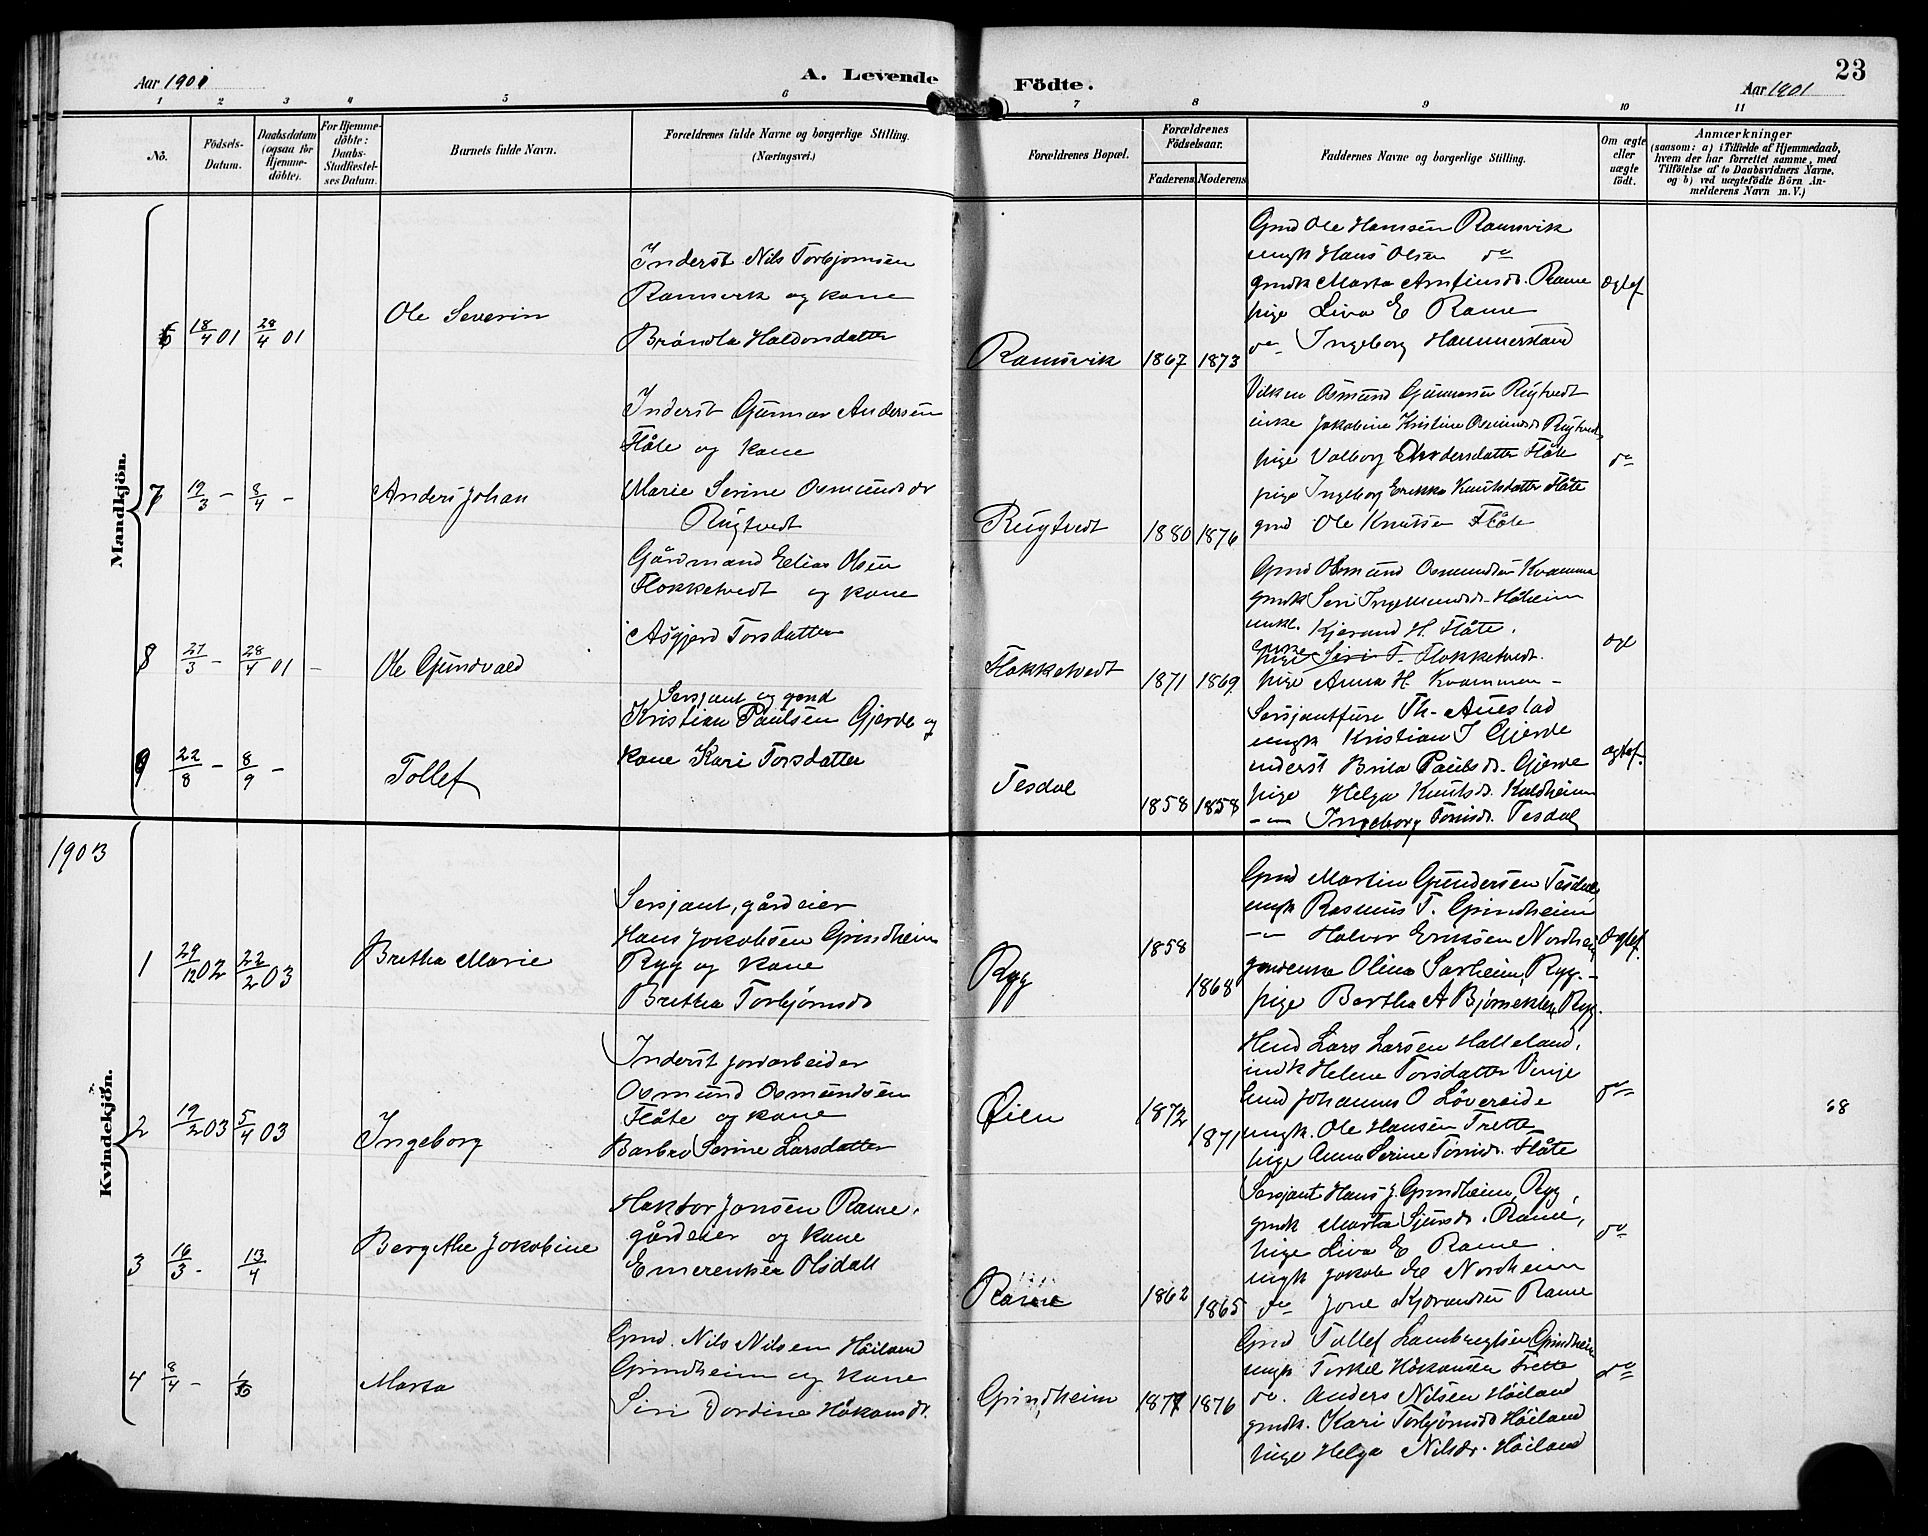 23
Aar 1901 A. Levende Födte. Aar 1901
1 2 3 4 5 6 7 8 9 10 11
No. Födsels-Datum. Daabsdatum (ogsaa for Hjemme-döbte). For Hjemme-döbte: Daabs-Stadfæstel-ses Datum. Barnets fulde Navn. Forældrenes fulde Navne og borgerlige Stilling. (Næringsvei.) Forældrenes Bopæl. Forældrenes Födselsaar. Faderens. Moderens. Faddernes Navne og borgerlige Stilling. Om ægte eller uægte födt. Anmærkninger (saasom: a) i Tilfælde af Hjemmedaab, hvem der har forrettet samme, med Tilföielse af to Daabsvidners Navne, og b) ved uægtefödte Börn An-melderens Navn m. V.)
Mandkjön.
6 18/4 01 28/4 01
Ole Severin
Inderst Nils Torbjornsen
Ramsvik og kone
Bröndla Haldorsdatter
Ramsvik 1867 1873
Gmd Ole Hansen Ramsvik
ungk Hans Olsen do
gmdk Marta Arnfinsd. Rame
pige Liva E Rame
do Ingeborg Hammerstad
Ægtef
7 19/3 - 8/4 -
Anders Johan
Inderst Gunnar Andersen
Flåte og kone
Marie Serine Osmundsdr
Rügtvedt
Rügtvedt 1880 1876
Osmund Gunnarsen Rügtvedt
enke Jakobine Kristine Osmundsd. Rügtvedt
pige Valborg Andersdatter Flåte
pige Ingeborg Erikka Knutsdatter Flåte
gmd Ole Knutsen Flåte
do
8 27/3 - 28/4 01 -
Ole Gundvald
Gårdmand Elias Olsen
Flokketvedt og kone
Åsgjerd Torsdatter
Flokketvedt 1871 1869
Gmd Osmund Osmundsen Kvamme
gmdk Seri Ingemundsd. Håheim
unkl. Kjerand H. Flåte.
pige Siri T. Flokketvedt.
pige Anna H. Kvammen -
9 22/8 - 8/9 -
Tollef
Sersjant og gmd
Kristian Paulsen Gjerde og
kone Kari Torsdatter
Tesdal 1858 1858
Sersjantfure Th. Auestad
ungk Kristian J Gjerde
inderst Brita Paulsd. Gjerde
pige Helga Knutsd. Kaldheim
-"- Ingeborg Tönisd. Tesdal
ægtef.
1903
Kvindekjön.
1 29/12 02 22/2 03
Bretha Marie
Sersjant, gårdeier
Hans Jakobsen Grindheim
Ryg og kone
Bretha Torbjörnsd
Ryg 1858 1868
Gmd Martin Gundersen Tesdal,
ungk Rasmus T. Grindheim
-"- Halvor Eriksen Nordheim
gmdenke Olina Sarheim, Ryg. -
pige Bertha A Bjørneklett Ryg.
Ægtef.
2 19/2 03 5/4 03
Ingeborg
Inderst jordarbeider
Osmund Osmundsen
Flåte og kone
Barbro Serine Larsdatter
Øien 1872 1871
Hmd Lars Larsen Halleland,
indk Helene Torsdatter Vinje
Gmd Johannes O Løvereide
ungk. Ole Hansen Trette
pige Anna Serine Tönisd. Flåte
do
68
3 16/3 - 13/4
Bergithe Jakobine
Haktor Jonsen Rame,
gårdeier og kone
Emerentse Olsdatt
Rame 1862 1865
Sersjant Hans J. Grindheim, Ryg,
gmdk Marta Sjursd. Rame,
pige Liva E Rame.
ungk Jakob E Nordheim
do Jone Kjerandsen Rame
do
4 8/4 -
Marta
Gmd. Nils Nilsen Höiland
Grindheim og kone
Siri Dordine Håkonsd.
Grindheim 1877 1876
Gmd Tollef Lambregtsen Grindheim
ungk Torkel Håkonsen Trette
do. Anders Nilsen Höiland
gmdk. Kari Torbjörnsd Höiland
pige Helga Nilsdr. Höiland
do